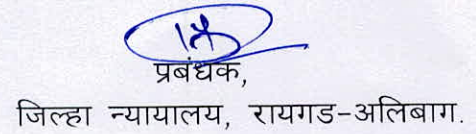 प्रबंधक,
जिल्हा न्यायालय, रायगड-अलिबाग.